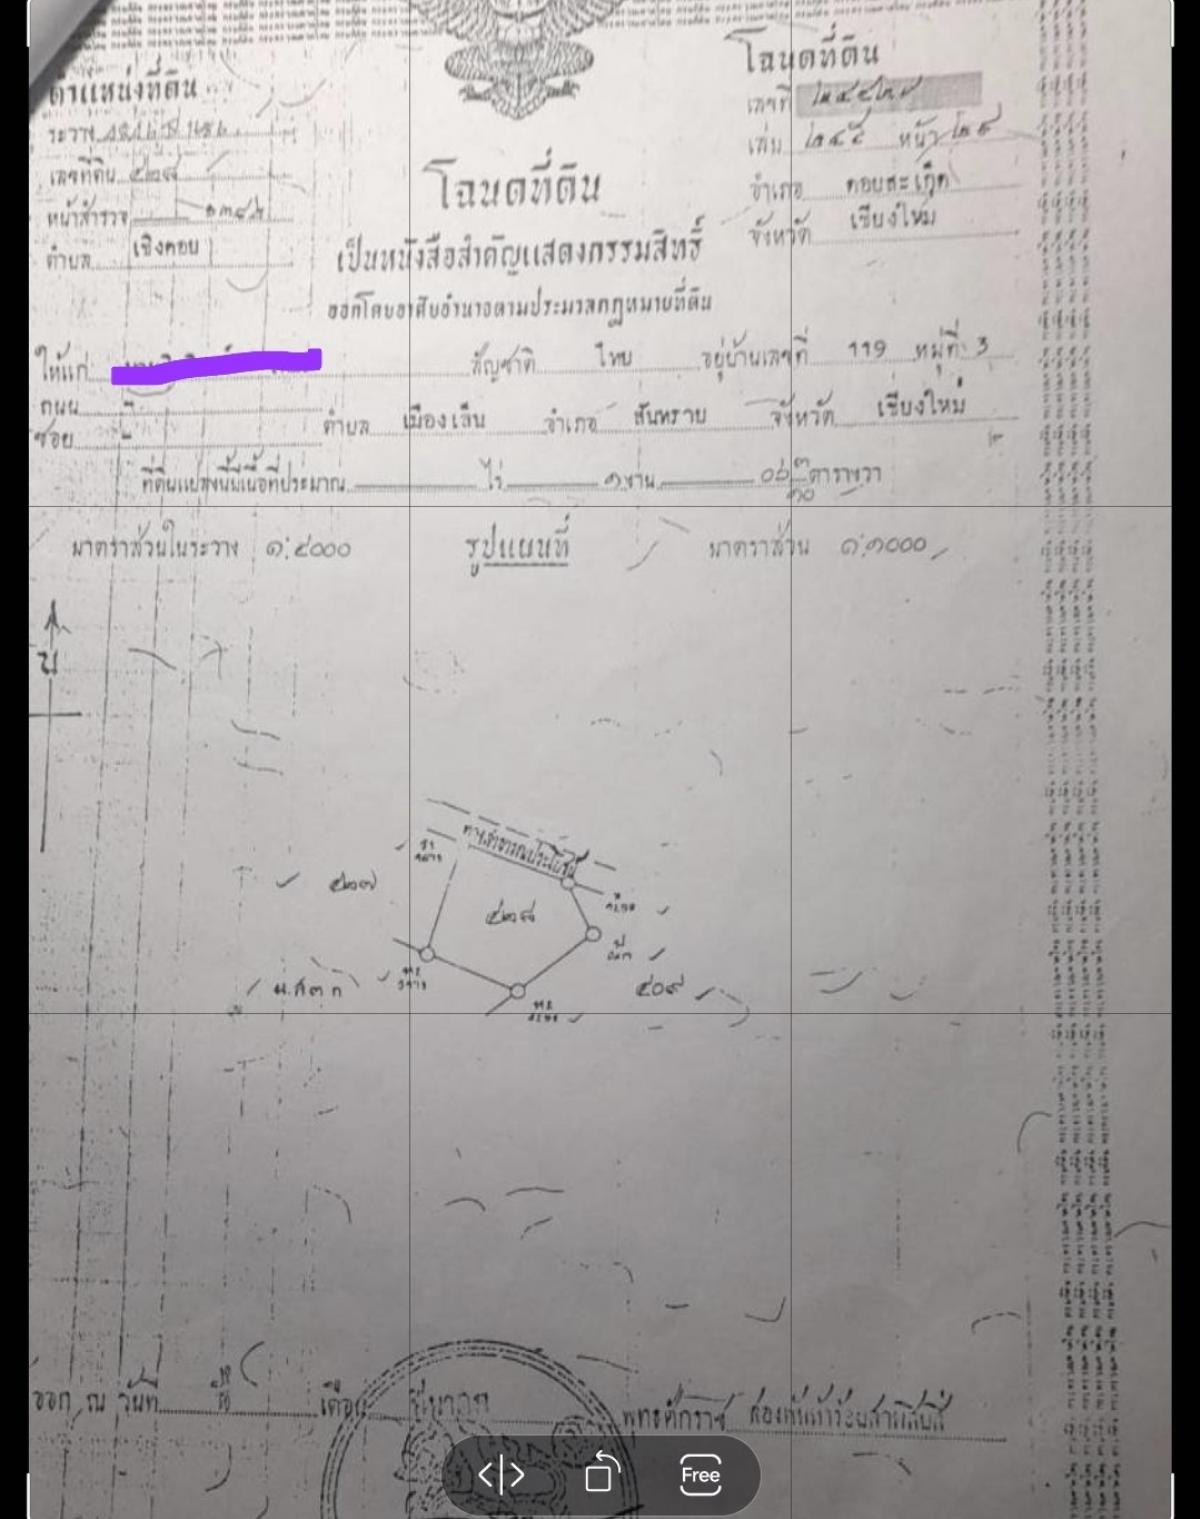 โฉนดที่ดิน
ตำแหน่งที่ดิน
เลขที่
ระวาง
เล่ม ๒๔๕ หน้า ๒๙
เลขที่ดิน ๕๒๘
โฉนดที่ดิน
อำเภอ ดอยสะเก็ด
หน้าสำรวจ ๑๓๔๒
จังหวัด เชียงใหม่
ตำบล เชิงดอย
เป็นหนังสือสำคัญแสดงกรรมสิทธิ์
ออกโดยอาศัยอำนาจตามประมวลกฎหมายที่ดิน
ให้แก่ สัญชาติ ไทย อยู่บ้านเลขที่ 119 หมู่ที่ 3
ถนน -
ซอย - ตำบล เมืองเล็น อำเภอ สันทราย จังหวัด เชียงใหม่
ที่ดินแปลงนี้มีเนื้อที่ประมาณ ไร่ ๑ งาน ตารางวา
มาตราส่วนในระวาง ๑:๔๐๐๐ รูปแผนที่ มาตราส่วน ๑:๑๐๐๐
น
ทางสาธารณประโยชน์
๕๒๗
๕๒๘
น.ส.๓ ก
๕๐๙
ออก ณ วันที่ เดือน ธันวาคม พุทธศักราช สองพันห้าร้อยสามสิบสี่
Free